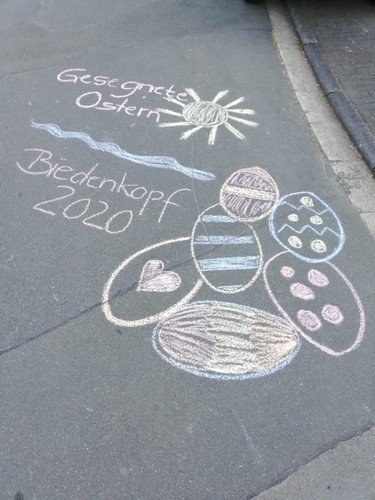 Gesegnete
Ostern
Biedenkopf
2020